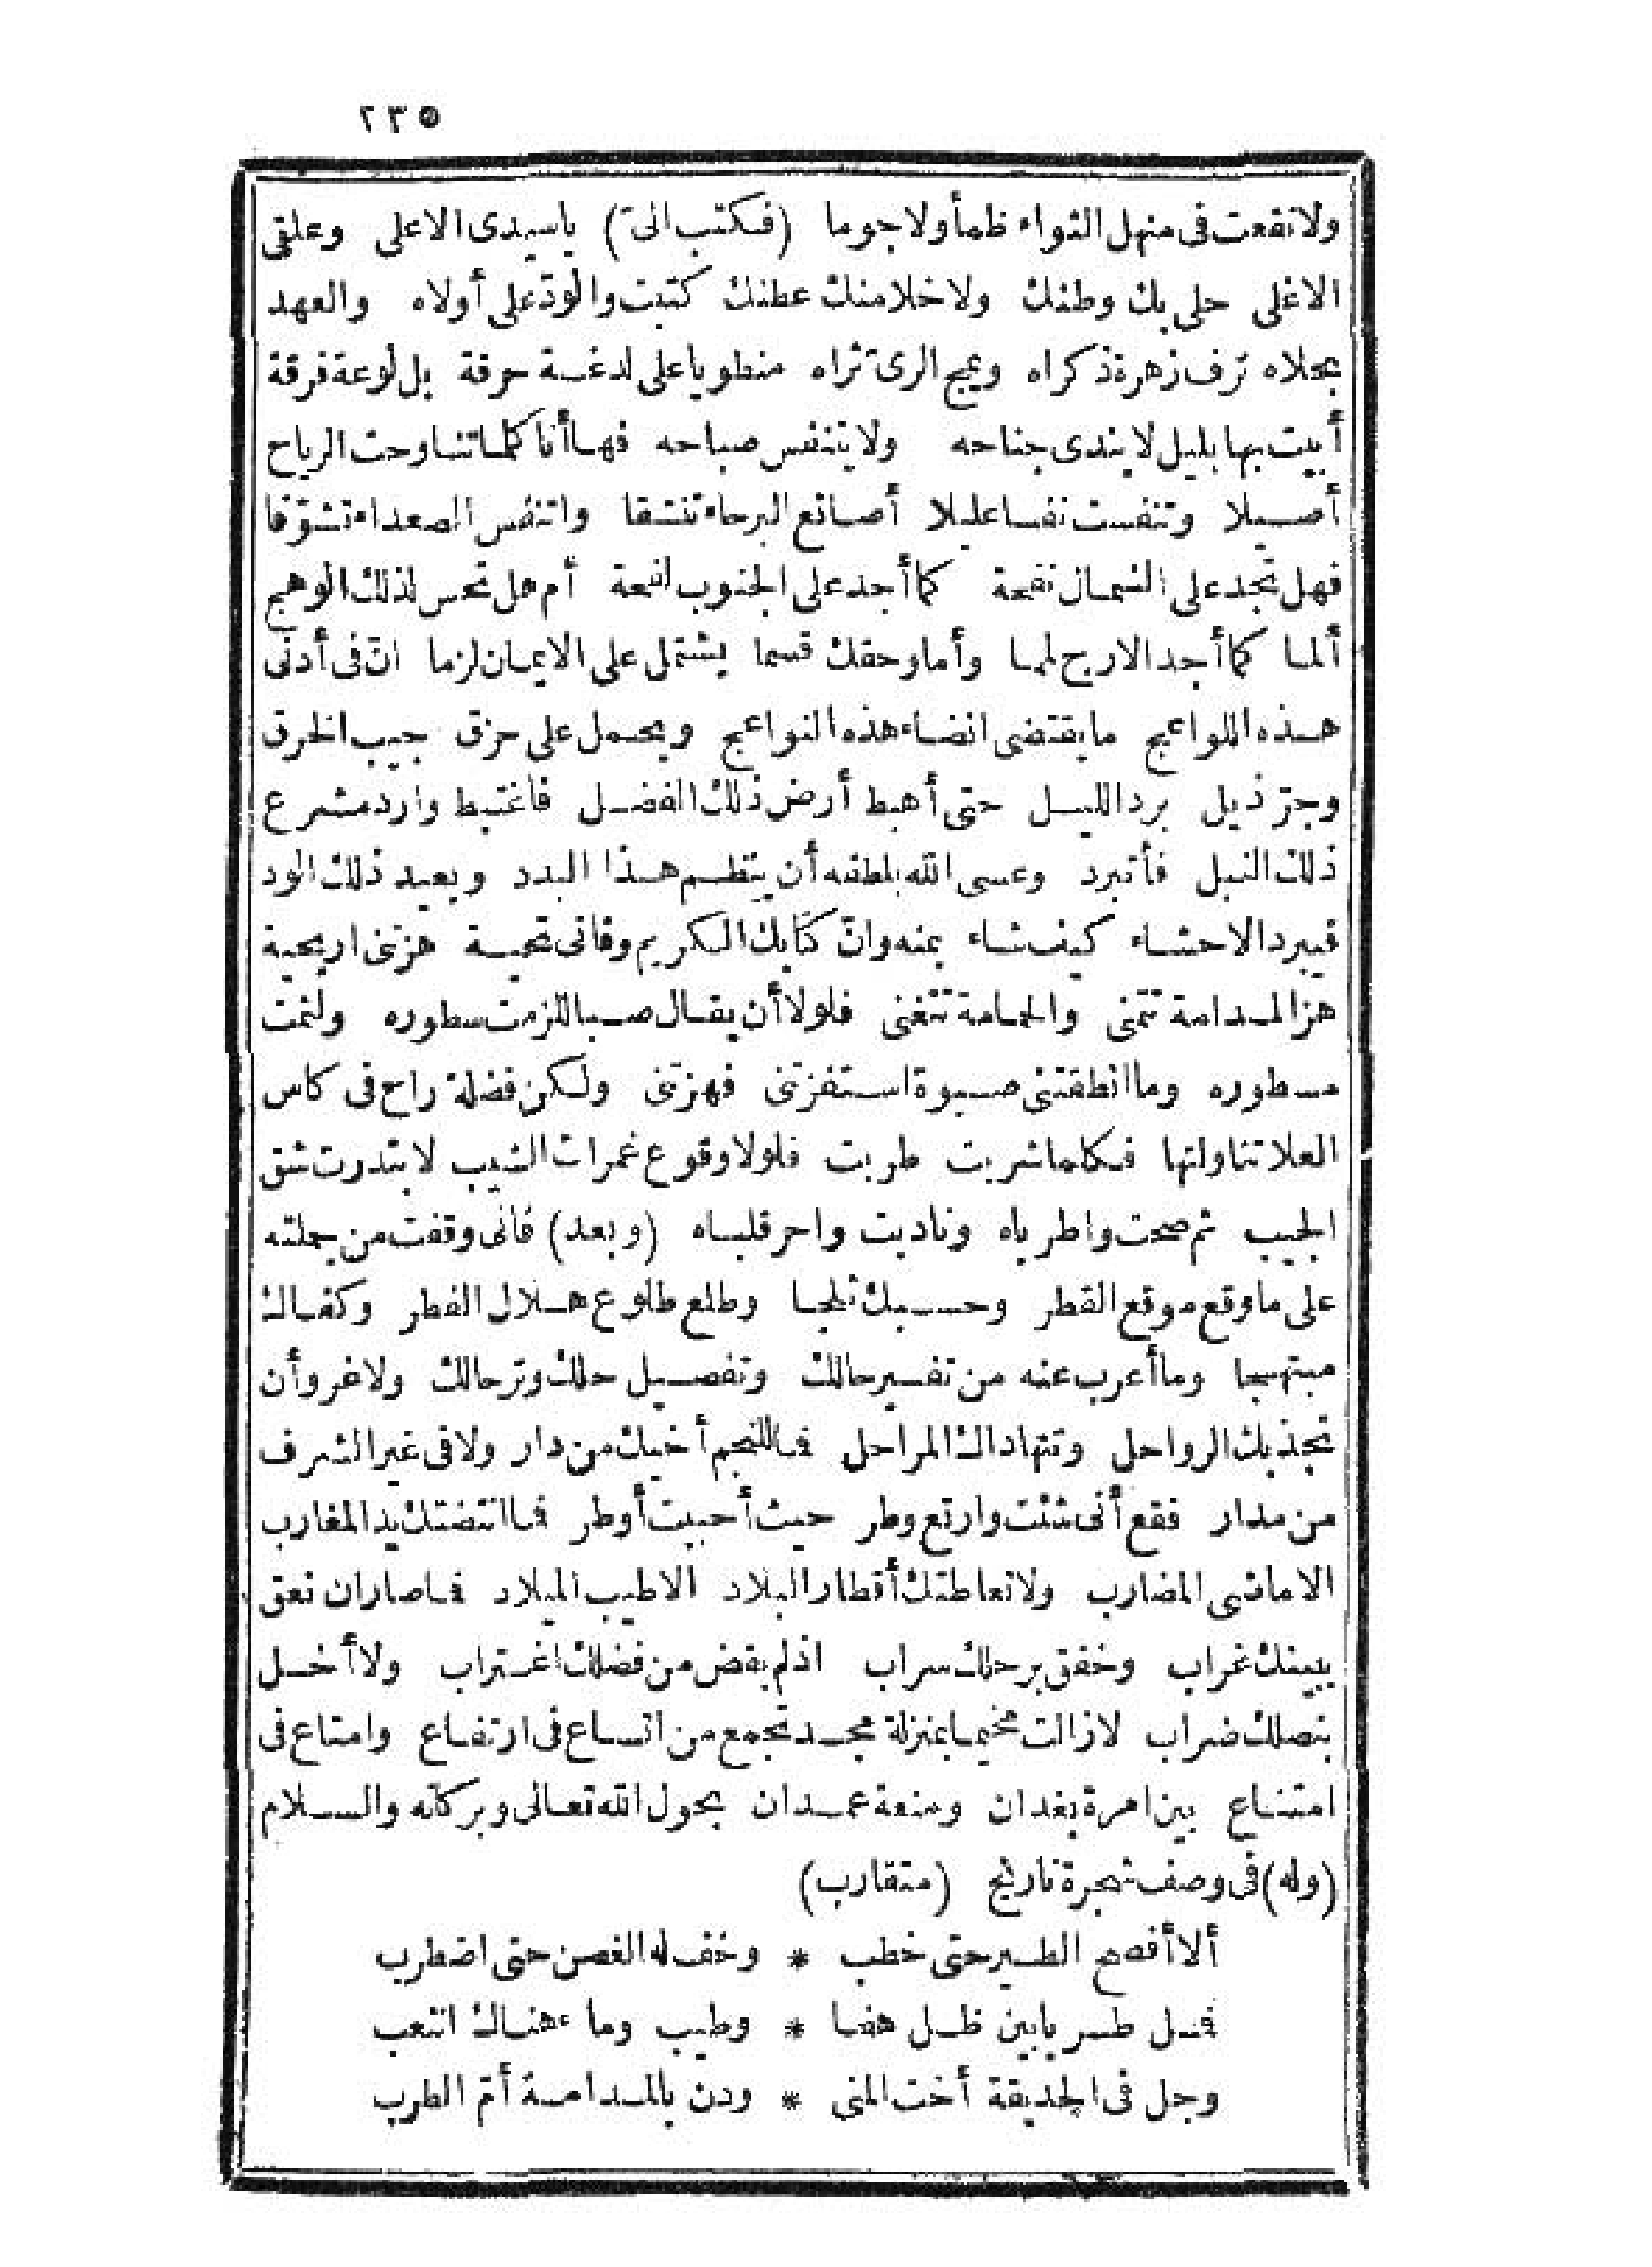 ٢٣٥
ولا نقعت فى منهل الثواء ظمأ ولا جوما (فكتب الىّ) ياسيدى الاعلى وعلقى
الاغلى حلى بك وطنك ولا خلا منك عطنك كتبت والودّ على أولاه والعهد
بحلاه ترف زهرة ذكراه ويمج الرىّ ثراه منطويا على لدغة حرقة بل لوعة فرقة
أبيت بها بليل لا يندى جناحه ولا يتنفس صباحه فها أنا كلما تناوحت الرياح
أصيلا وتنفست نفسا عليلا أصانع البرحاء تنشقا واتنفس الصعداء تشوّقا
فهل تجد على الشمال نفحة كما أجد على الجنوب لفحة أم هل تحس لذلك الوهج
ألما كما أجد الارج لمما وأما وحقك قسما يشتمل على الايمان لزما انّ فى أدنى
هذه اللواعج ما يقتضى انضاء هذه النواعج ويحمل على حزق جيب الخرق
وجرّ ذيل برد الليل حتى أهبط أرض ذلك الفضل فاغتبط وارد مشرع
ذلك النبل فأتبرد وعسى الله بلطفه أن ينظم هذا البدد ويعيد ذلك الود
فيبرد الاحشاء كيف شاء بمنه وانّ كتابك الكريم وفانى تحية هزتنى اريحية
هز المدامة تتمنى والحمامة تتغنى فلولا أن يقال صبا للزمت سطوره ولثمت
مسطوره وما انطقتنى صبوة استفزتنى فهزتنى ولكن فضلة راح فى كاس
العلا تناولتها فكلما شربت طربت فلولا وقوع غمرات الشيب لابتدرت شق
الجيب ثم صحت واطرباه وناديت واحر قلباه (وبعد) فانى وقفت من جملته
على ما وقع موقع القطر وحسبك ثلجا وطلع طلوع هلال الفطر وكفاك
مبتهجا وما أعرب عنه من تفسير حالك وتفصيل حلك وترحالك ولا غرو أن
تجذبك الرواحل وتتهاداك المراحل فما للنجم أخيك من دار ولا فى غير الشرف
من مدار فقع أنى شئت وارتع وطر حيث أحببت أوطر فما انتضتك يد المغارب
الا ماضى المضارب ولا تعاطتك أقطار البلاد الا طيب الميلاد فما صار ان نعق
ببينك غراب وخفق برحلك سراب اذ لم يقض من فضلك اغتراب ولا أخل
بنصلك ضراب لا زالت مخيما بمنزلة مجد تجمع من اتساع فى ارتفاع وامتاع فى
امتناع بين امرة بغدان ومنعة غمدان بحول الله تعالى وبركاته والسلام
(وله) فى وصف شجرة نارنج (متقارب)
ألا أفصح الطير حتى خطب * وخف له الغصن حتى اضطرب
فمل طربا بين ظل هفا * وطيب وماء هناك انثعب
وجل فى الحديقة أخت المنى * ودن بالمدامة أمّ الطرب